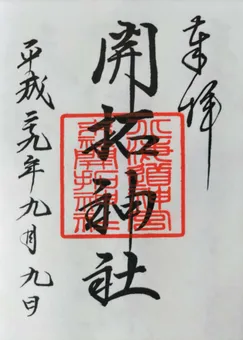 奉拝
開拓神社
北海道神宮
末社開拓神社
平成二十九年九月九日